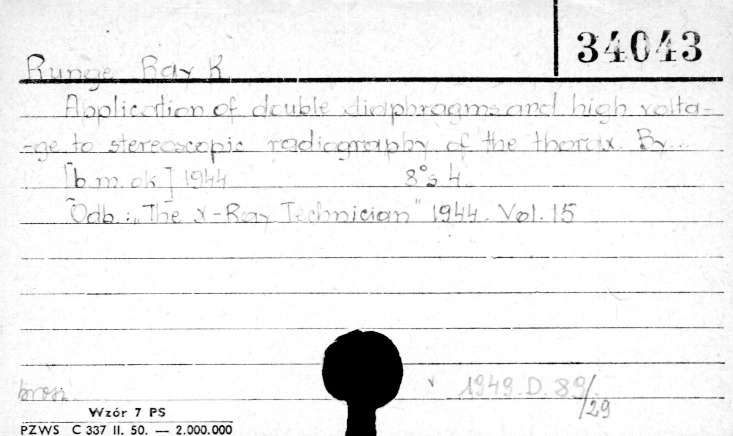 34043
Runge Ray K
Application of double diaphragms and high volta-
-ge to stereoscopic radiography of the thorax. By...
[b.m. ok] 1944 8° s 4.
Odb.: „The X-Ray Technician" 1944. Vol. 15
bron. v 1949. D. 89/29
Wzór 7 PS
PZWS C 337 II. 50. — 2.000.000